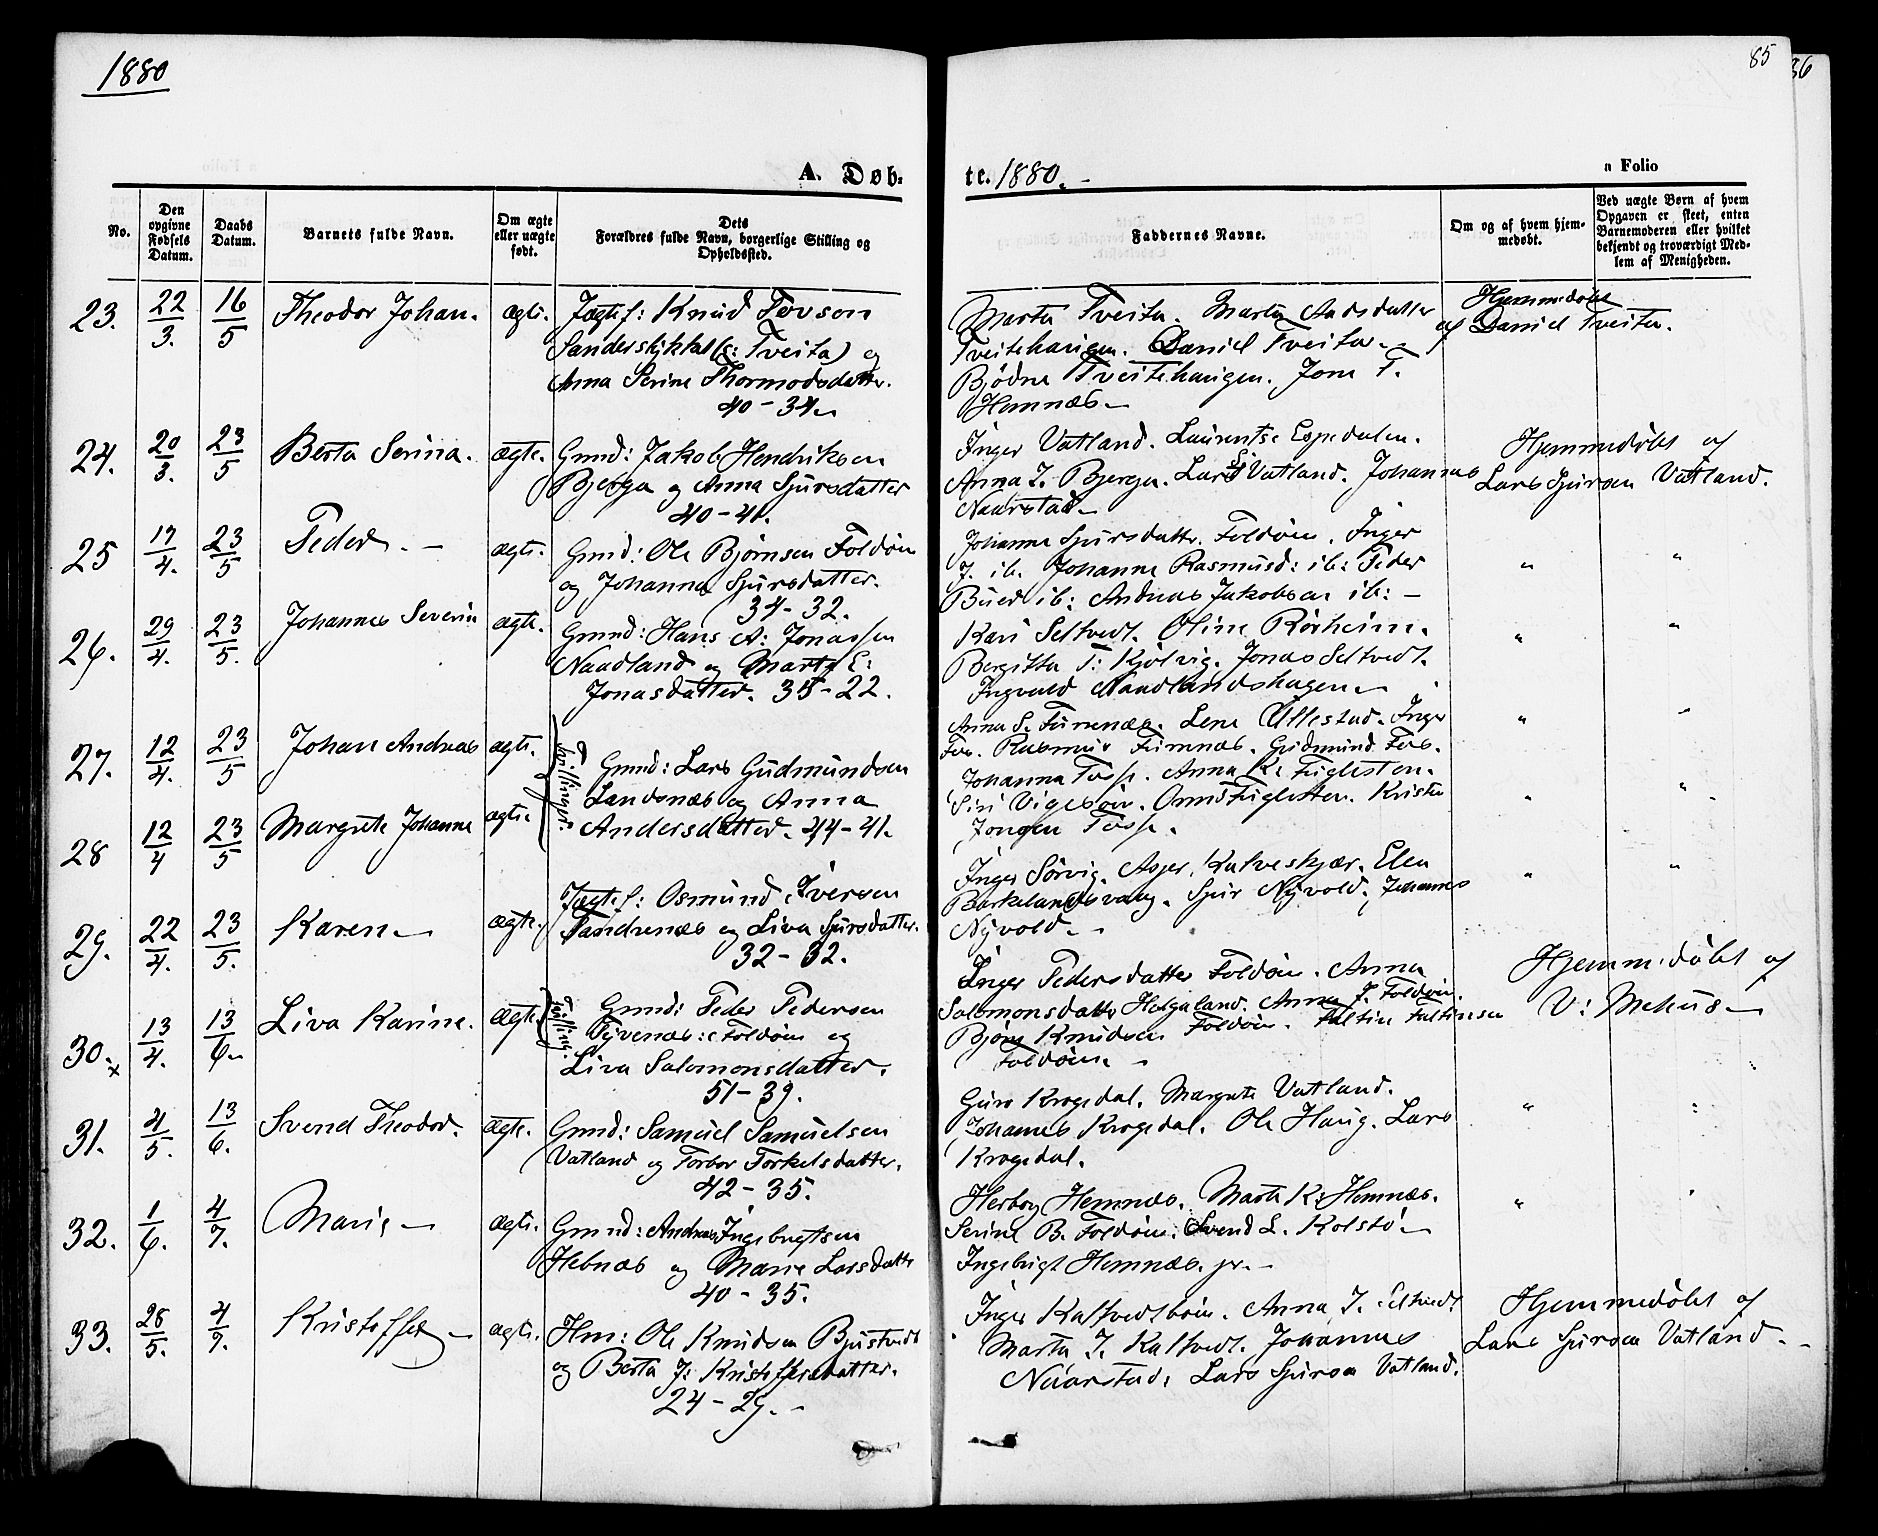 1880
85
36
A. Døb-
te. 1880. -
a Folio
No.
Den opgivne Fødsels Datum.
Daabs Datum.
Barnets fulde Navn.
Om ægte eller uægte født.
Dets Forældres fulde Navn, borgerlige Stilling og Opholdssted.
Faddernes Navne.
Om og af hvem hjemmedøbt.
Ved uægte Børn af hvem Opgaven er skeet, enten Barnemoderen eller hvilket bekjendt og troværdigt Medlem af Menigheden.
23. 22/3. 16/5 Theodor Johan. ægte. Jægtef: Knud Tovson
(s: Tveita) og
Anna Serine Thormodsdatter.
40 - 34.
Marta Tveita. Marta Aadsdatter
Tveitehaugen. Daniel Tveita.
Bjødne Tveitehaugen. Jone T.
Hemnæs.
Hjemmedøbt
af Daniel Tveita.
24. 20/3. 23/5 Berta Serina. ægte. Gmd: Jakob Hendriksen
Bjerga og Anna Sjursdatter
40 - 41.
Inger Vatland. Laurentse Espedalen.
Anna I. Bjerga. Lars Vatland. Johannes
Naarstad.
Hjemmedøbt af
Lars Sjursen Vatland.
25 17/4. 23/5 Peder. - ægte. Gmd: Ole Bjørnsen Foldøen
og Johanna Sjursdatter.
34 - 32.
Johanna Sjursdatter Foldøen. Inger
J. ib. Johanna Rasmusd: ib: Peder
Bued ib: Andreas Jakobsen ib: -
" "
26. 29/4. 23/5. Johannes Severin ægte. Gmd: Hans A: Jonassen
Naadland og Marta E:
Jonasdatter. 35 - 22.
Kari Seltvedt. Oline Rørheim.
Bergitta T: Kjølvig. Jonas Seltvedt.
Ingvald Naadlandshagen.
" "
27. 12/4. 23/5 Johan Andreas ægte. Tvillinger. Gmd: Lars Gudmundsen
Landsnæs og Anna
Andersdatter. 44 - 41.
Anna S. Finnnæs. Lene Ullestad. Inger
Fos. Rasmus Finnnæs. Gudmund Fos.
" "
28 12/4 23/5 Margrete Johanne ægte.
Johanna Foss. Anna K: Fuglesten.
Siri Vigesøen. Fuglesten. Kristen
Foss.
" "
29. 22/4. 23/5. Karen ægte. Jægtef: Osmund Iversen
Sandrenæs og Liva Sjursdatter.
32 - 32.
Inger Sørvig. Kalveskjær. Elen
Barkelandsvaag. Sjur Nyvold. Johannes
Nyvold.
" "
30. x 13/4. 13/6. Liva Karine. ægte. Tvilling. Gmd: Peder Pedersen
Foldøen og
Liva Salomonsdatter.
51 - 39.
Inger Pedersdatter Foldøen. Anna
Salomonsdatter Helgaland. Anna J. Foldøen.
Bjørn Knudsen Foldøen. Faltin Faltinsen
Foldøen. -
Hjemmedøbt af
V: Mehus
31. 4/5. 13/6. Svend Theodor. ægte. Gmd: Samuel Samuelsen
Vatland og Torbor Torkelsdatter.
42 - 35.
Guro Krogedal. Margrete Vatland.
Johannes Krogedal. Ole Haug. Lars
Krogedal.
" "
32. 1/6. 4/7. Marie ægte. Gmd: Andreas Ingebregtsen
Hebnæs og Marie Larsdatter
40 - 35.
Herborg Hemnæs. Marta K: Hemnæs.
Serine B. Foldøen. Svend L. Kolstø
Ingebrigt Hemnæs. jr. -
" "
33. 28/5. 4/7. Kristoffer ægte. Hm: Ole Knudsen
og Berta J: Kristoffersdatter.
24 - 29. -
Inger Kaltvedtbøen. Anna J.
Marta J. Kaltvedt. Johannes
Naarstad. Lars Sjursen Vatland.
Hjemmedøbt af
Lars Sjursen Vatland. -